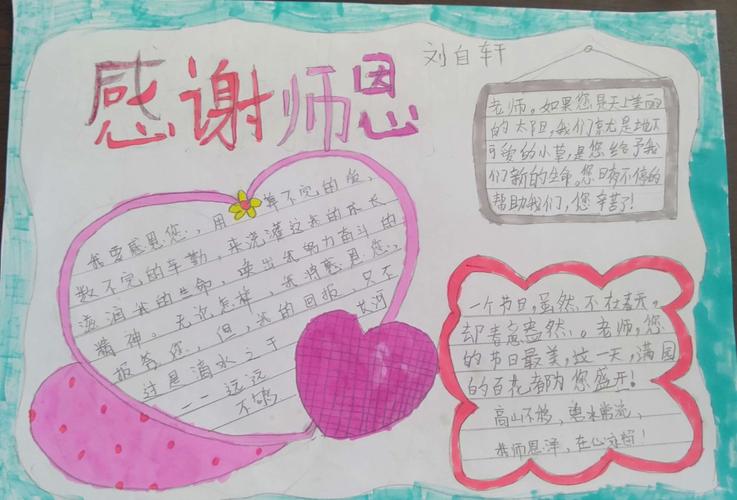 感谢师恩
刘自轩
老师。如果您是天上美丽
的太阳，我们就是地下
可爱的小草，是您给予我
们新的生命。您日夜不停的
帮助我们，您辛苦了！
我要感恩您，用算不完的爱，
数不完的辛勤，来浇灌这我的成长
滋润我的生命，唤出我努力奋斗的
精神。无论怎样，我将感恩您，
报答您，但，我的回报，只不
过是滴水之于长河
——远远
不够
一个节日，虽然不在春天。
却春意盎然。老师，您
的节日最美，这一天，满园
的百花都为您盛开！
高山不移，碧水常流，
我师恩泽，在心永铭！